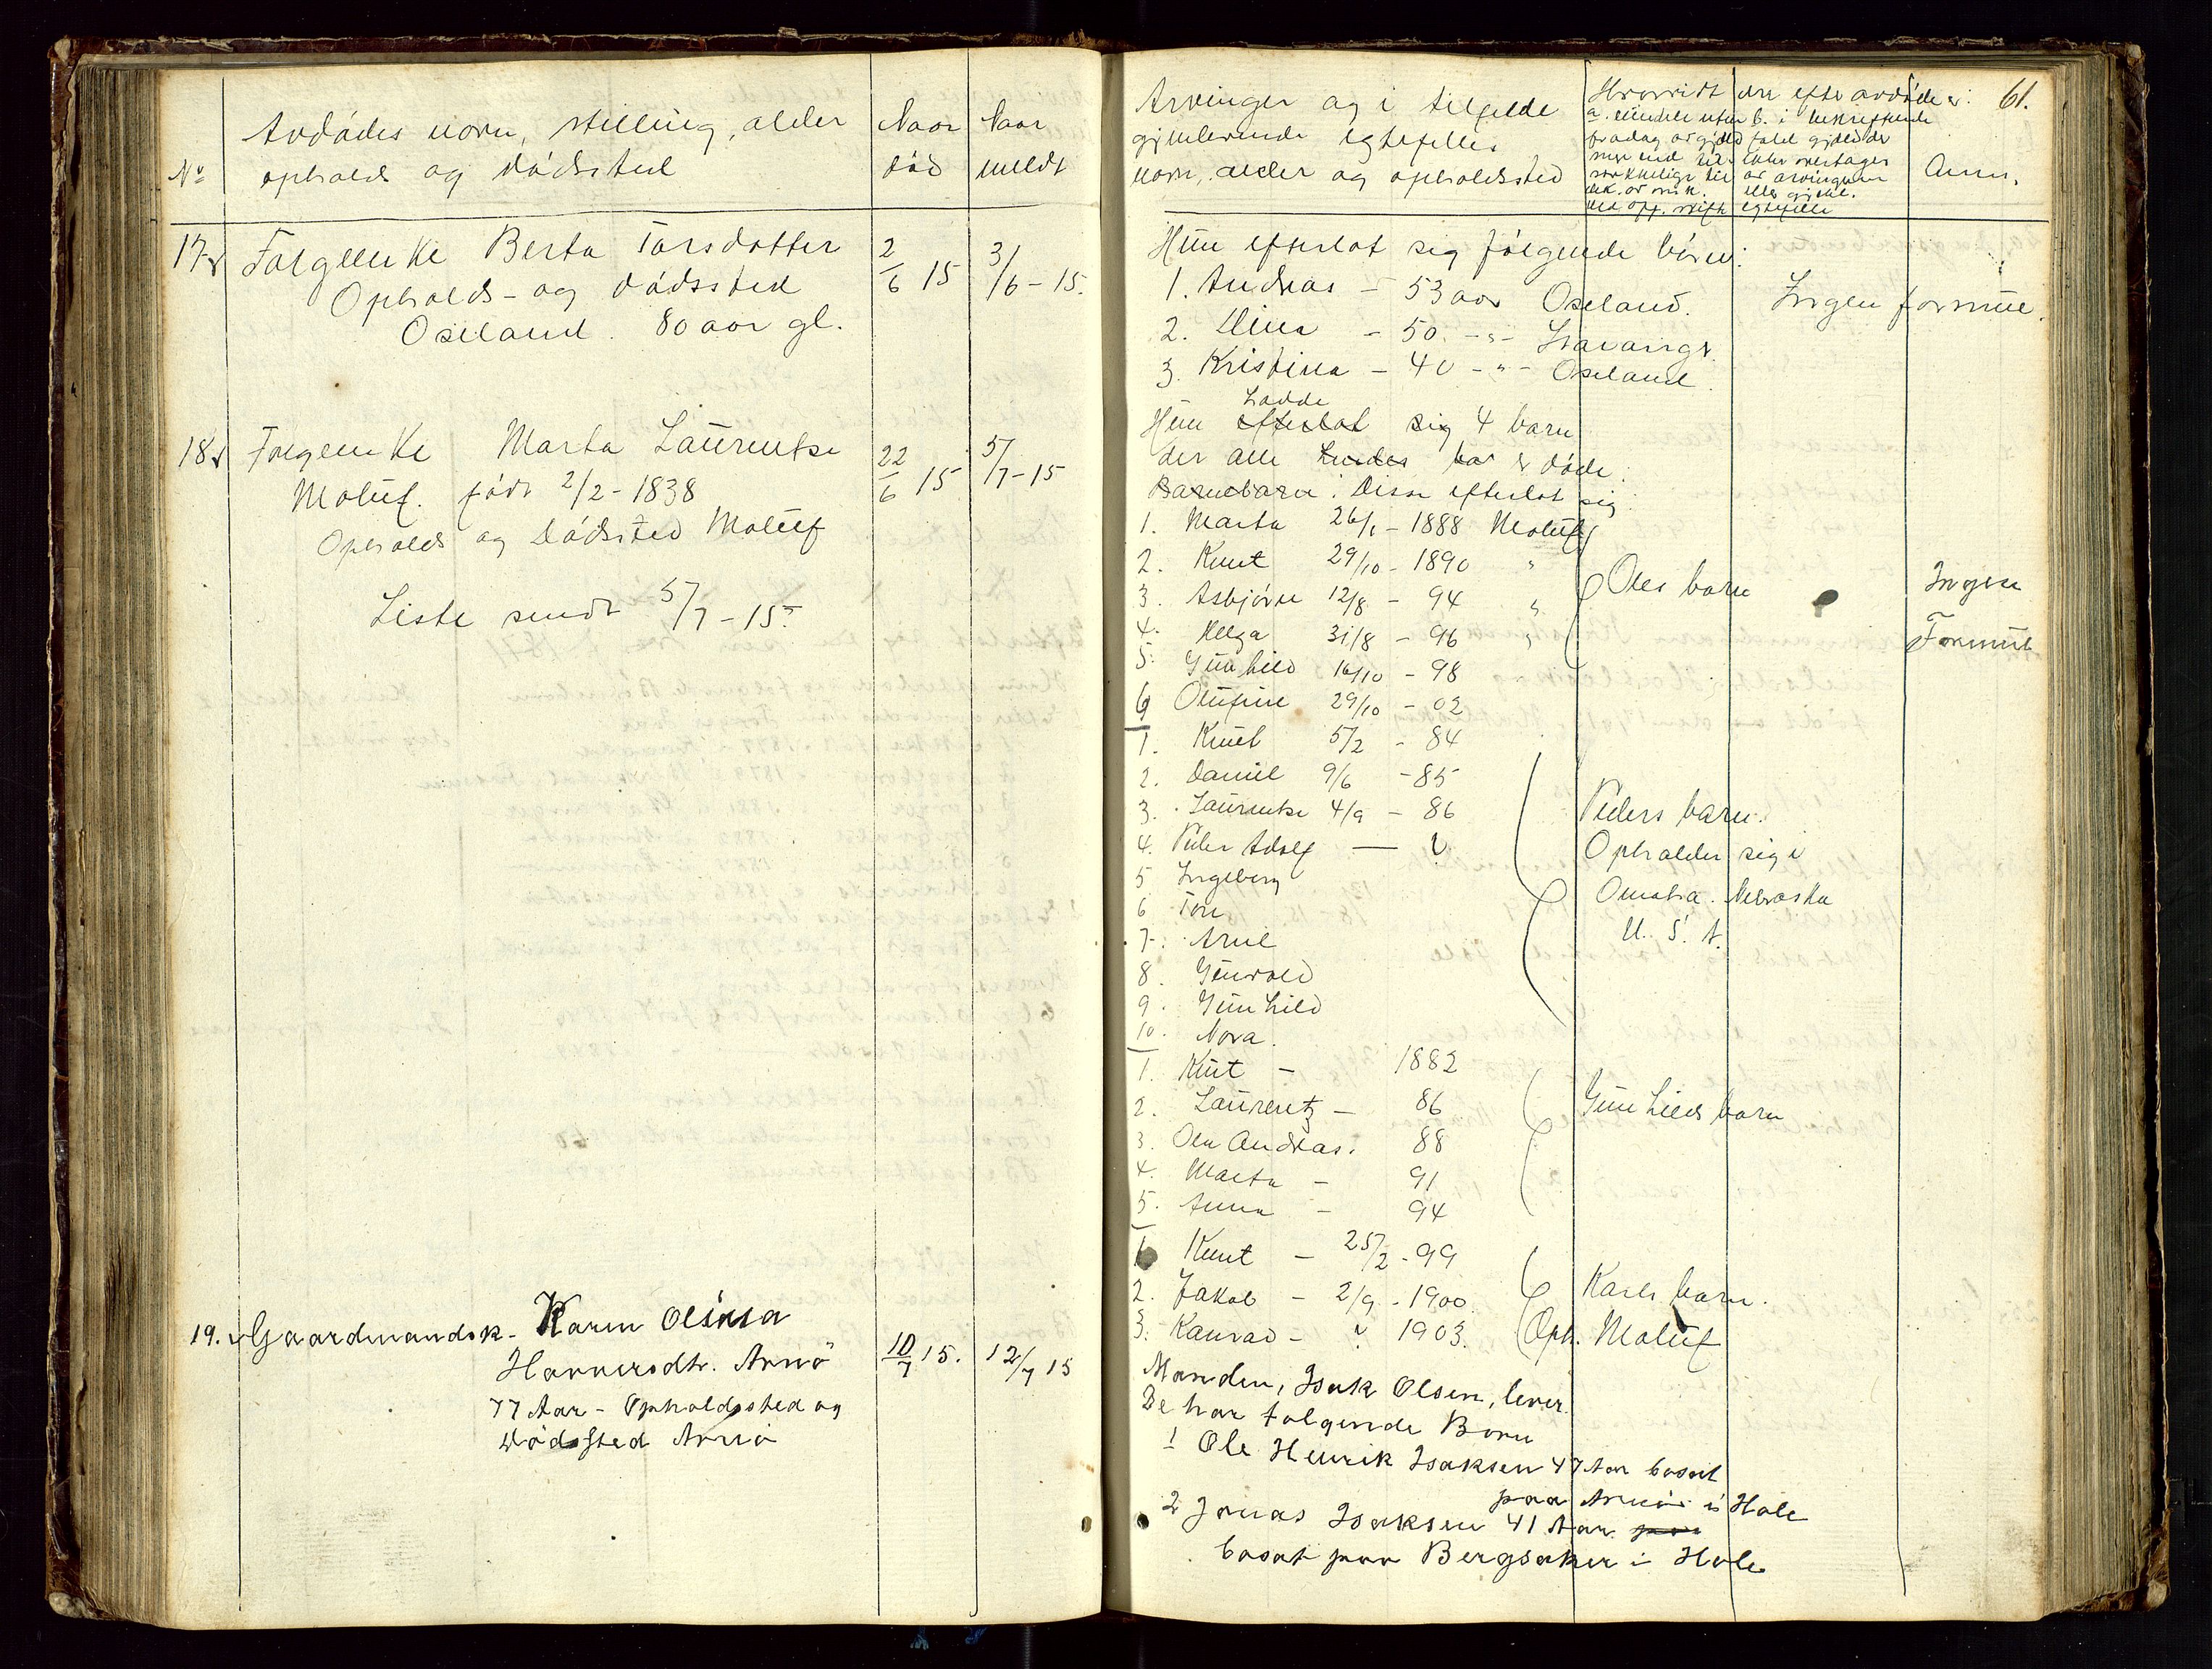 No
Avdødes navn, stilling, alder
opholds og dødssted
Naar
død
Naar
meldt
17
Folgeenke Berta Torsdatter
Opholds- og dødssted
Oseland. 80 aar gl.
2/6 15
3/6 - 15.
18
Folgeenke Marta Laurentse
Moluf. født 2/2 - 1838
Opholds og Dødssted Moluf
22/6 15
5/7 - 15
Liste sendt 5/7 - 15
19.
Gaardmandsk. Karen Olina
Hansersdtr. Arnø
77 Aar - Opholdssted og
Dødssted Arnø
10/7 15.
12/7 15
61.
Arvinger og i tilfelde
gjenlevende egtefelles
navn, alder og opholdssted
Hvorvidt der efter avdøde er:
a. midler uten
fradrag av gjeld
b. i bekreftende
fald gjelder
eller overtages
av arvingerne
eller gjenl.
egtefelle
Anm.
Hun efterlot sig følgende børn:
1. Andreas - 53 aar Oseland.
2. Dina - 50 - " - Stavanger.
3. Kristina - 40 - " - Oseland.
Ingen formue.
Hadde
Hun efterlot sig 4 barn
der alle er døde.
Barnebarn: Disse efterlot sig:
1. Marta 26/1 - 1888 Moluf
2. Knut 29/10 - 1890 "
3. Asbjørn 12/8 - 94 "
4. Helga 31/8 - 96 "
5. Gunhild 16/10 - 98
6 Olufine 29/10 - 02
Oles barn
Ingen
Formue
1. Knut 5/2 - 84
2. Daniel 9/6 - 85
3. Laurentse 4/9 - 86
4. Peder Adolf — ?
5 Ingeborg
6 Tore
7. Arne
8. Gunvald
9. Gunhild
10. Nora.
Peders barn.
Opholder sig i
Omaha. Nebraska
U. S. A.
1. Knut - 1882
2. Laurentz - 86
3. Ole Andreas. 88
4. Marta - 91
5. Anna - 94
Gunhilds barn
1. Knut - 25/2 - 99
2. Jakob - 2/9 - 1900.
3. Konrad - ? 1903.
Karls barn.
Oph. Moluf
Manden, Isak Olsen, lever.
De har følgende Børn
1 Ole Henrik Isaksen 47 Aar bosat
paa Arnø i Hole
2 Jonas Isaksen 41 Aar paa
bosat paa Bergsaker i Hole